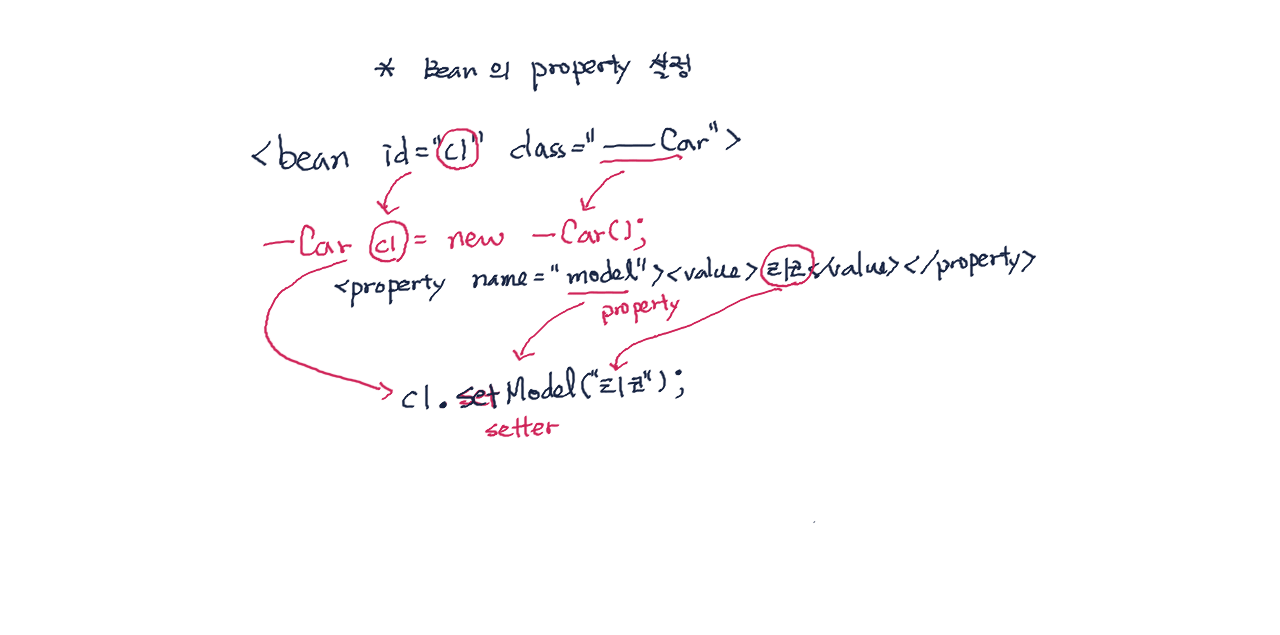 * Bean 의 property 설정
<bean id="c1" class="——Car">
—Car c1 = new —Car();
<property name="model"><value>리코</value></property>
property
c1.setModel("리코");
setter